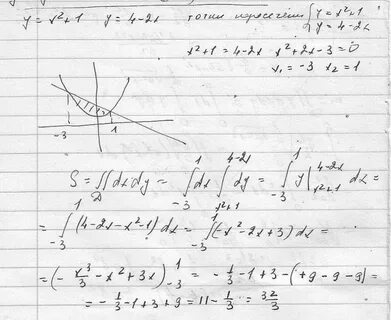 y = x²+1   y = 4-2x   точки пересечения {y = x²+1
y = 4-2x
x²+1 = 4-2x   x²+2x-3=0
x₁ = -3   x₂ = 1
-3   1
S = ∬_D dxdy = ∫_{-3}^{1} dx ∫_{x²+1}^{4-2x} dy = ∫_{-3}^{1} y |_{x²+1}^{4-2x} dx =
= ∫_{-3}^{1} (4-2x-x²-1) dx = ∫_{-3}^{1} (-x²-2x+3) dx =
= (-x³/3 - x² + 3x)_{-3}^{1} = -1/3 -1+3 -(+9-9-9) =
= -1/3 -1+3+9 = 11 - 1/3 = 32/3